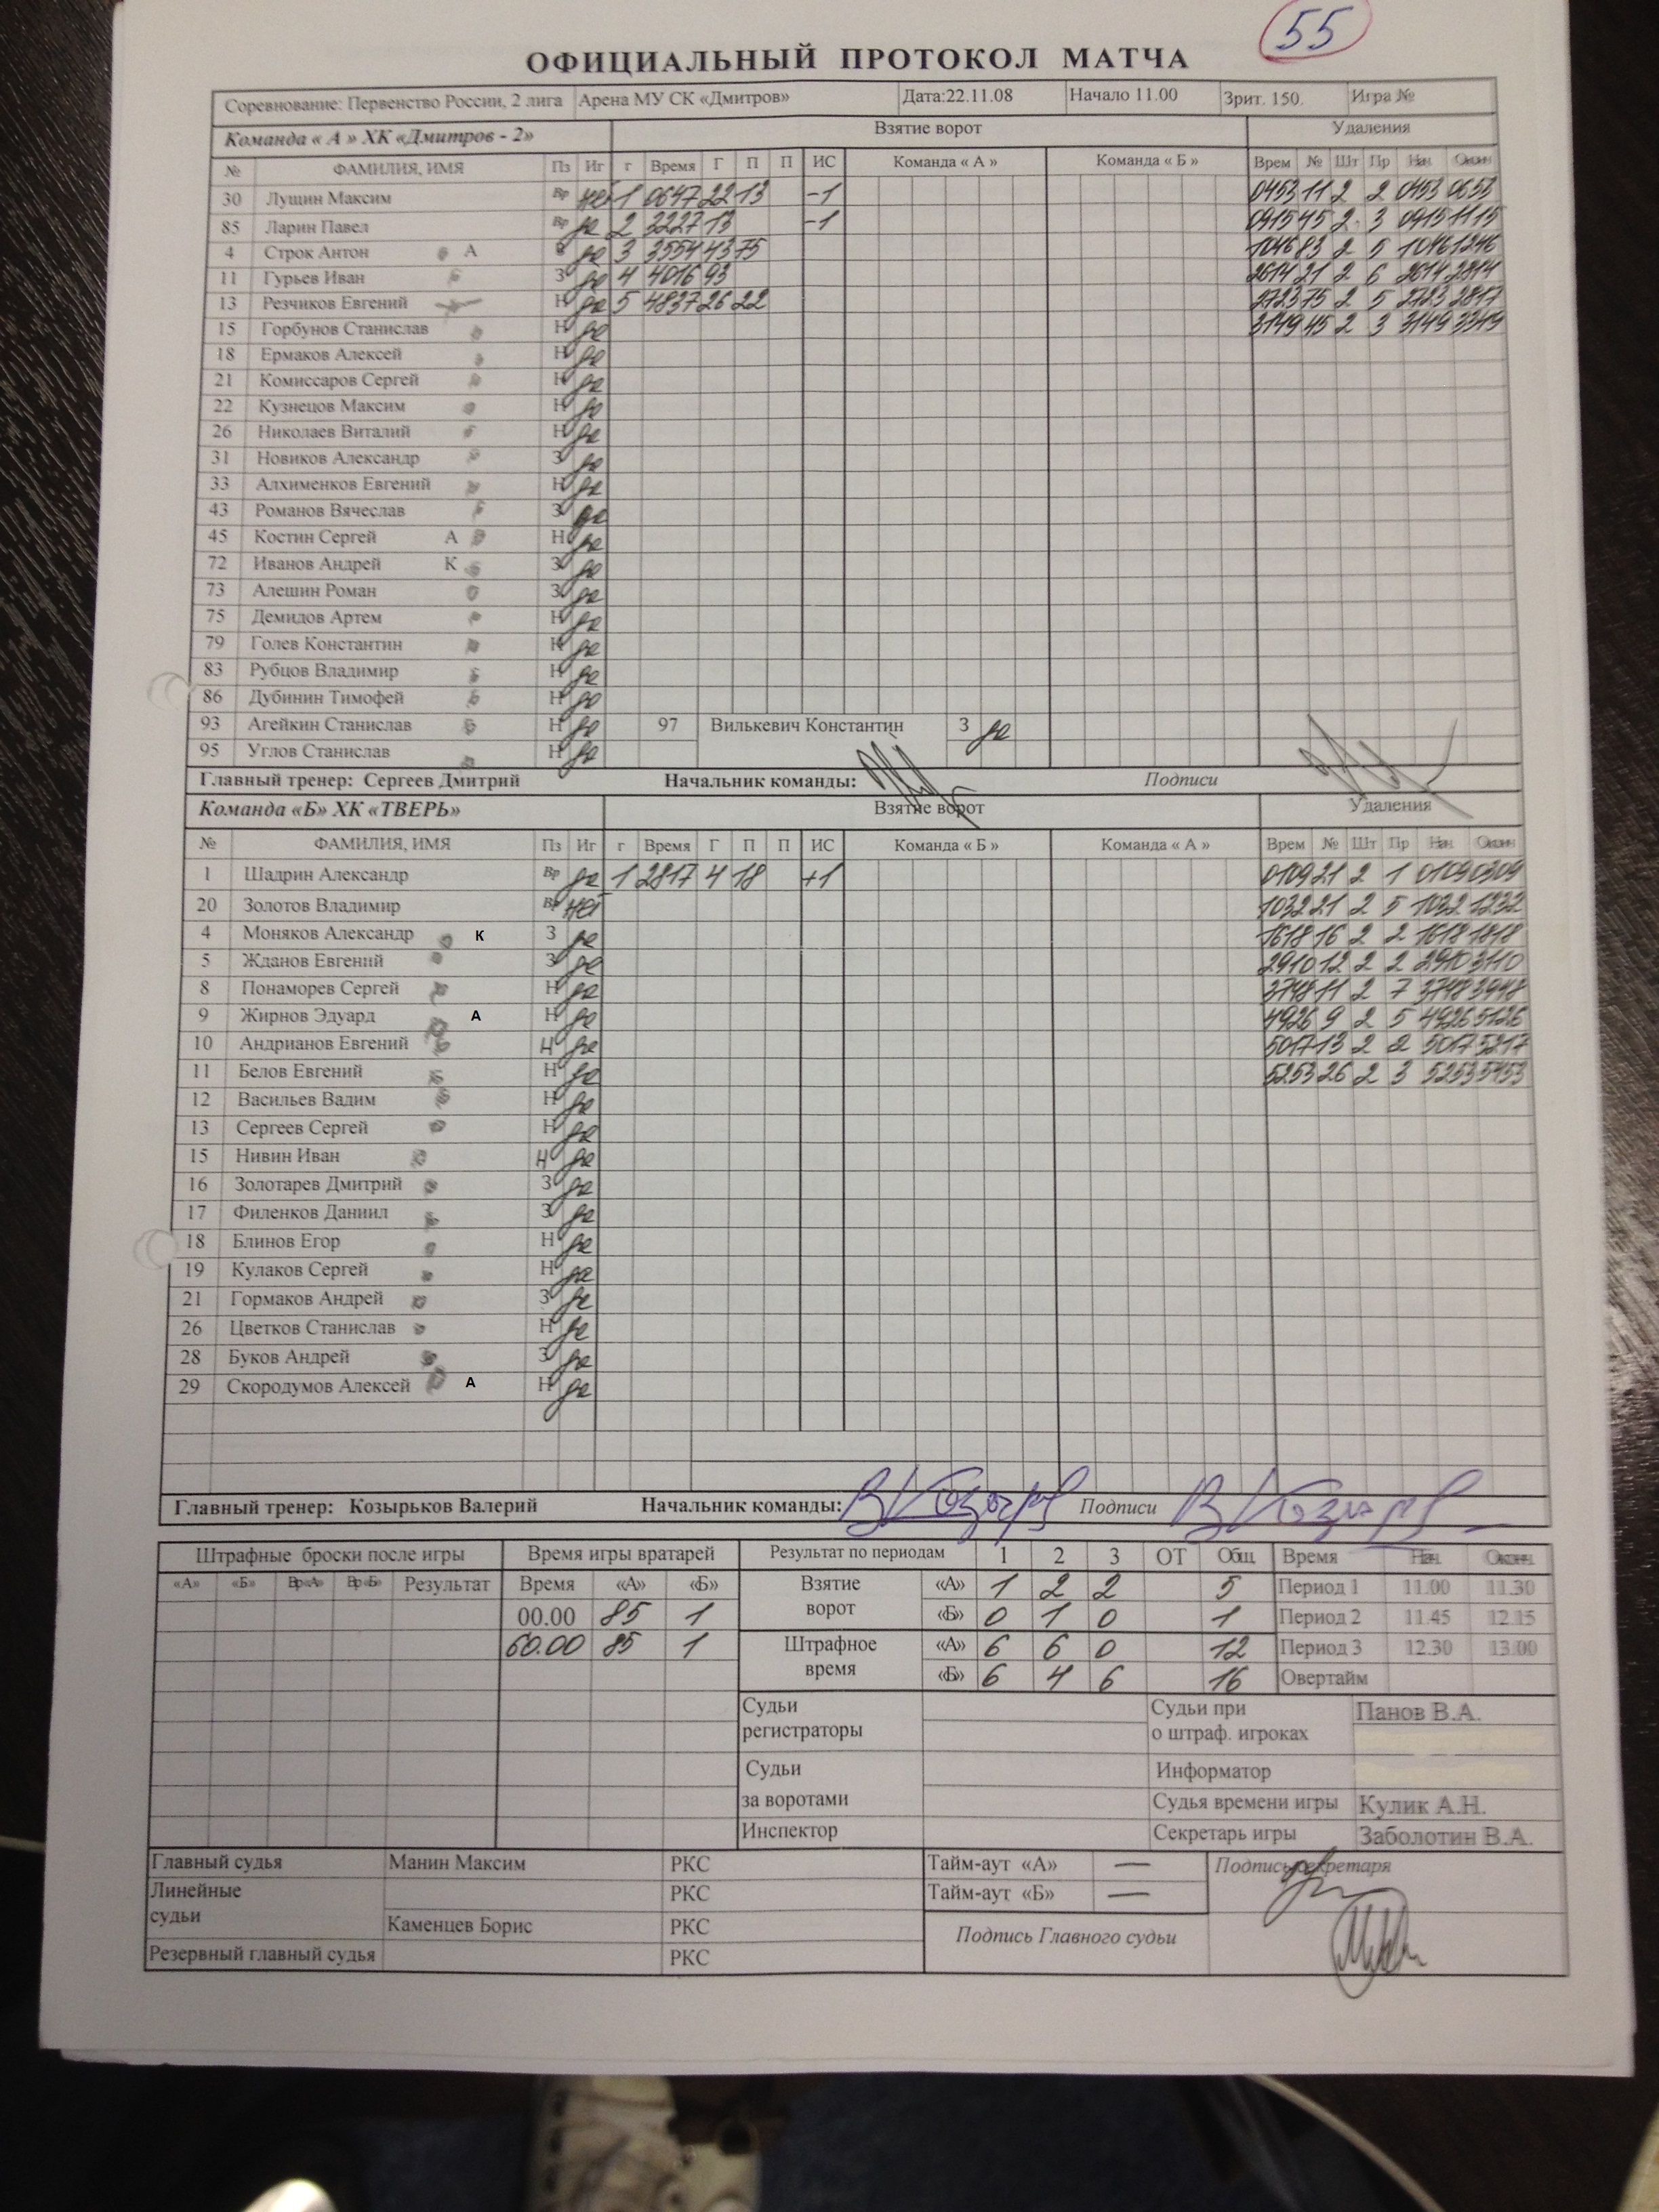 55
ОФИЦИАЛЬНЫЙ ПРОТОКОЛ МАТЧА
Соревнование: Первенство России, 2 лига Арена МУ СК «Дмитров» Дата:22.11.08 Начало 11.00 Зрит. 150. Игра №
Команда « А » ХК «Дмитров - 2» Взятие ворот Удаления
№ ФАМИЛИЯ, ИМЯ Пз Иг г Время Г П П ИС Команда « А » Команда « Б » Врем № Шт Пр Нач Оконч
30 Лущин Максим Вр нет 1 0647 22 13 -1 0453 11 2 2 0453 0653
85 Ларин Павел Вр да 2 3227 13 -1 0915 45 2 3 0915 1115
4 Строк Антон А да 3 3554 43 75 1046 83 2 5 1046 1246
11 Гурьев Иван З да 4 4016 93 2614 21 2 6 2614 2814
13 Резчиков Евгений Н да 5 4837 26 22 2723 75 2 5 2723 2817
15 Горбунов Станислав Н да 3149 45 2 3 3149 3349
18 Ермаков Алексей Н да
21 Комиссаров Сергей Н да
22 Кузнецов Максим Н да
26 Николаев Виталий Н да
31 Новиков Александр З да
33 Алхименков Евгений Н да
43 Романов Вячеслав З да
45 Костин Сергей А Н да
72 Иванов Андрей К З да
73 Алешин Роман З да
75 Демидов Артем Н да
79 Голев Константин Н да
83 Рубцов Владимир Н да
86 Дубинин Тимофей Н да
93 Агейкин Станислав Н да 97 Вилькевич Константин З да
95 Углов Станислав Н да
Главный тренер: Сергеев Дмитрий Начальник команды: Подписи
Команда «Б» ХК «ТВЕРЬ» Взятие ворот Удаления
№ ФАМИЛИЯ, ИМЯ Пз Иг г Время Г П П ИС Команда « Б » Команда « А » Врем № Шт Пр Нач Оконч
1 Шадрин Александр Вр да 1 2817 4 18 +1 0109 21 2 1 0109 0309
20 Золотов Владимир Вр нет 1032 21 2 5 1032 1232
4 Моняков Александр К З да 1618 16 2 2 1618 1818
5 Жданов Евгений З да 2910 12 2 2 2910 3110
8 Понаморев Сергей Н да 3748 11 2 7 3748 3948
9 Жирнов Эдуард А Н да 4926 9 2 5 4926 5126
10 Андрианов Евгений Н да 5017 13 2 2 5017 5217
11 Белов Евгений Н да 5253 26 2 3 5253 5453
12 Васильев Вадим Н да
13 Сергеев Сергей Н да
15 Нивин Иван Н да
16 Золотарев Дмитрий З да
17 Филенков Даниил З да
18 Блинов Егор Н да
19 Кулаков Сергей Н да
21 Гормаков Андрей З да
26 Цветков Станислав Н да
28 Буков Андрей З да
29 Скородумов Алексей А Н да
Главный тренер: Козырьков Валерий Начальник команды: Подписи
Штрафные броски после игры Время игры вратарей Результат по периодам 1 2 3 ОТ Общ Время Нач. Оконч.
«А» «Б» Вр«А» Вр«Б» Результат Время «А» «Б» Взятие ворот «А» 1 2 2 5 Период 1 11.00 11.30
00.00 85 1 «Б» 0 1 0 1 Период 2 11.45 12.15
60.00 85 1 Штрафное время «А» 6 6 0 12 Период 3 12.30 13.00
«Б» 6 4 6 16 Овертайм
Судьи регистраторы Судьи при о штраф. игроках Панов В.А.
Судьи за воротами Информатор
Судья времени игры Кулик А.Н.
Инспектор Секретарь игры Заболотин В.А.
Главный судья Манин Максим РКС Тайм-аут «А» — Подпись секретаря
Линейные судьи РКС Тайм-аут «Б» —
Каменцев Борис РКС Подпись Главного судьи
Резервный главный судья РКС